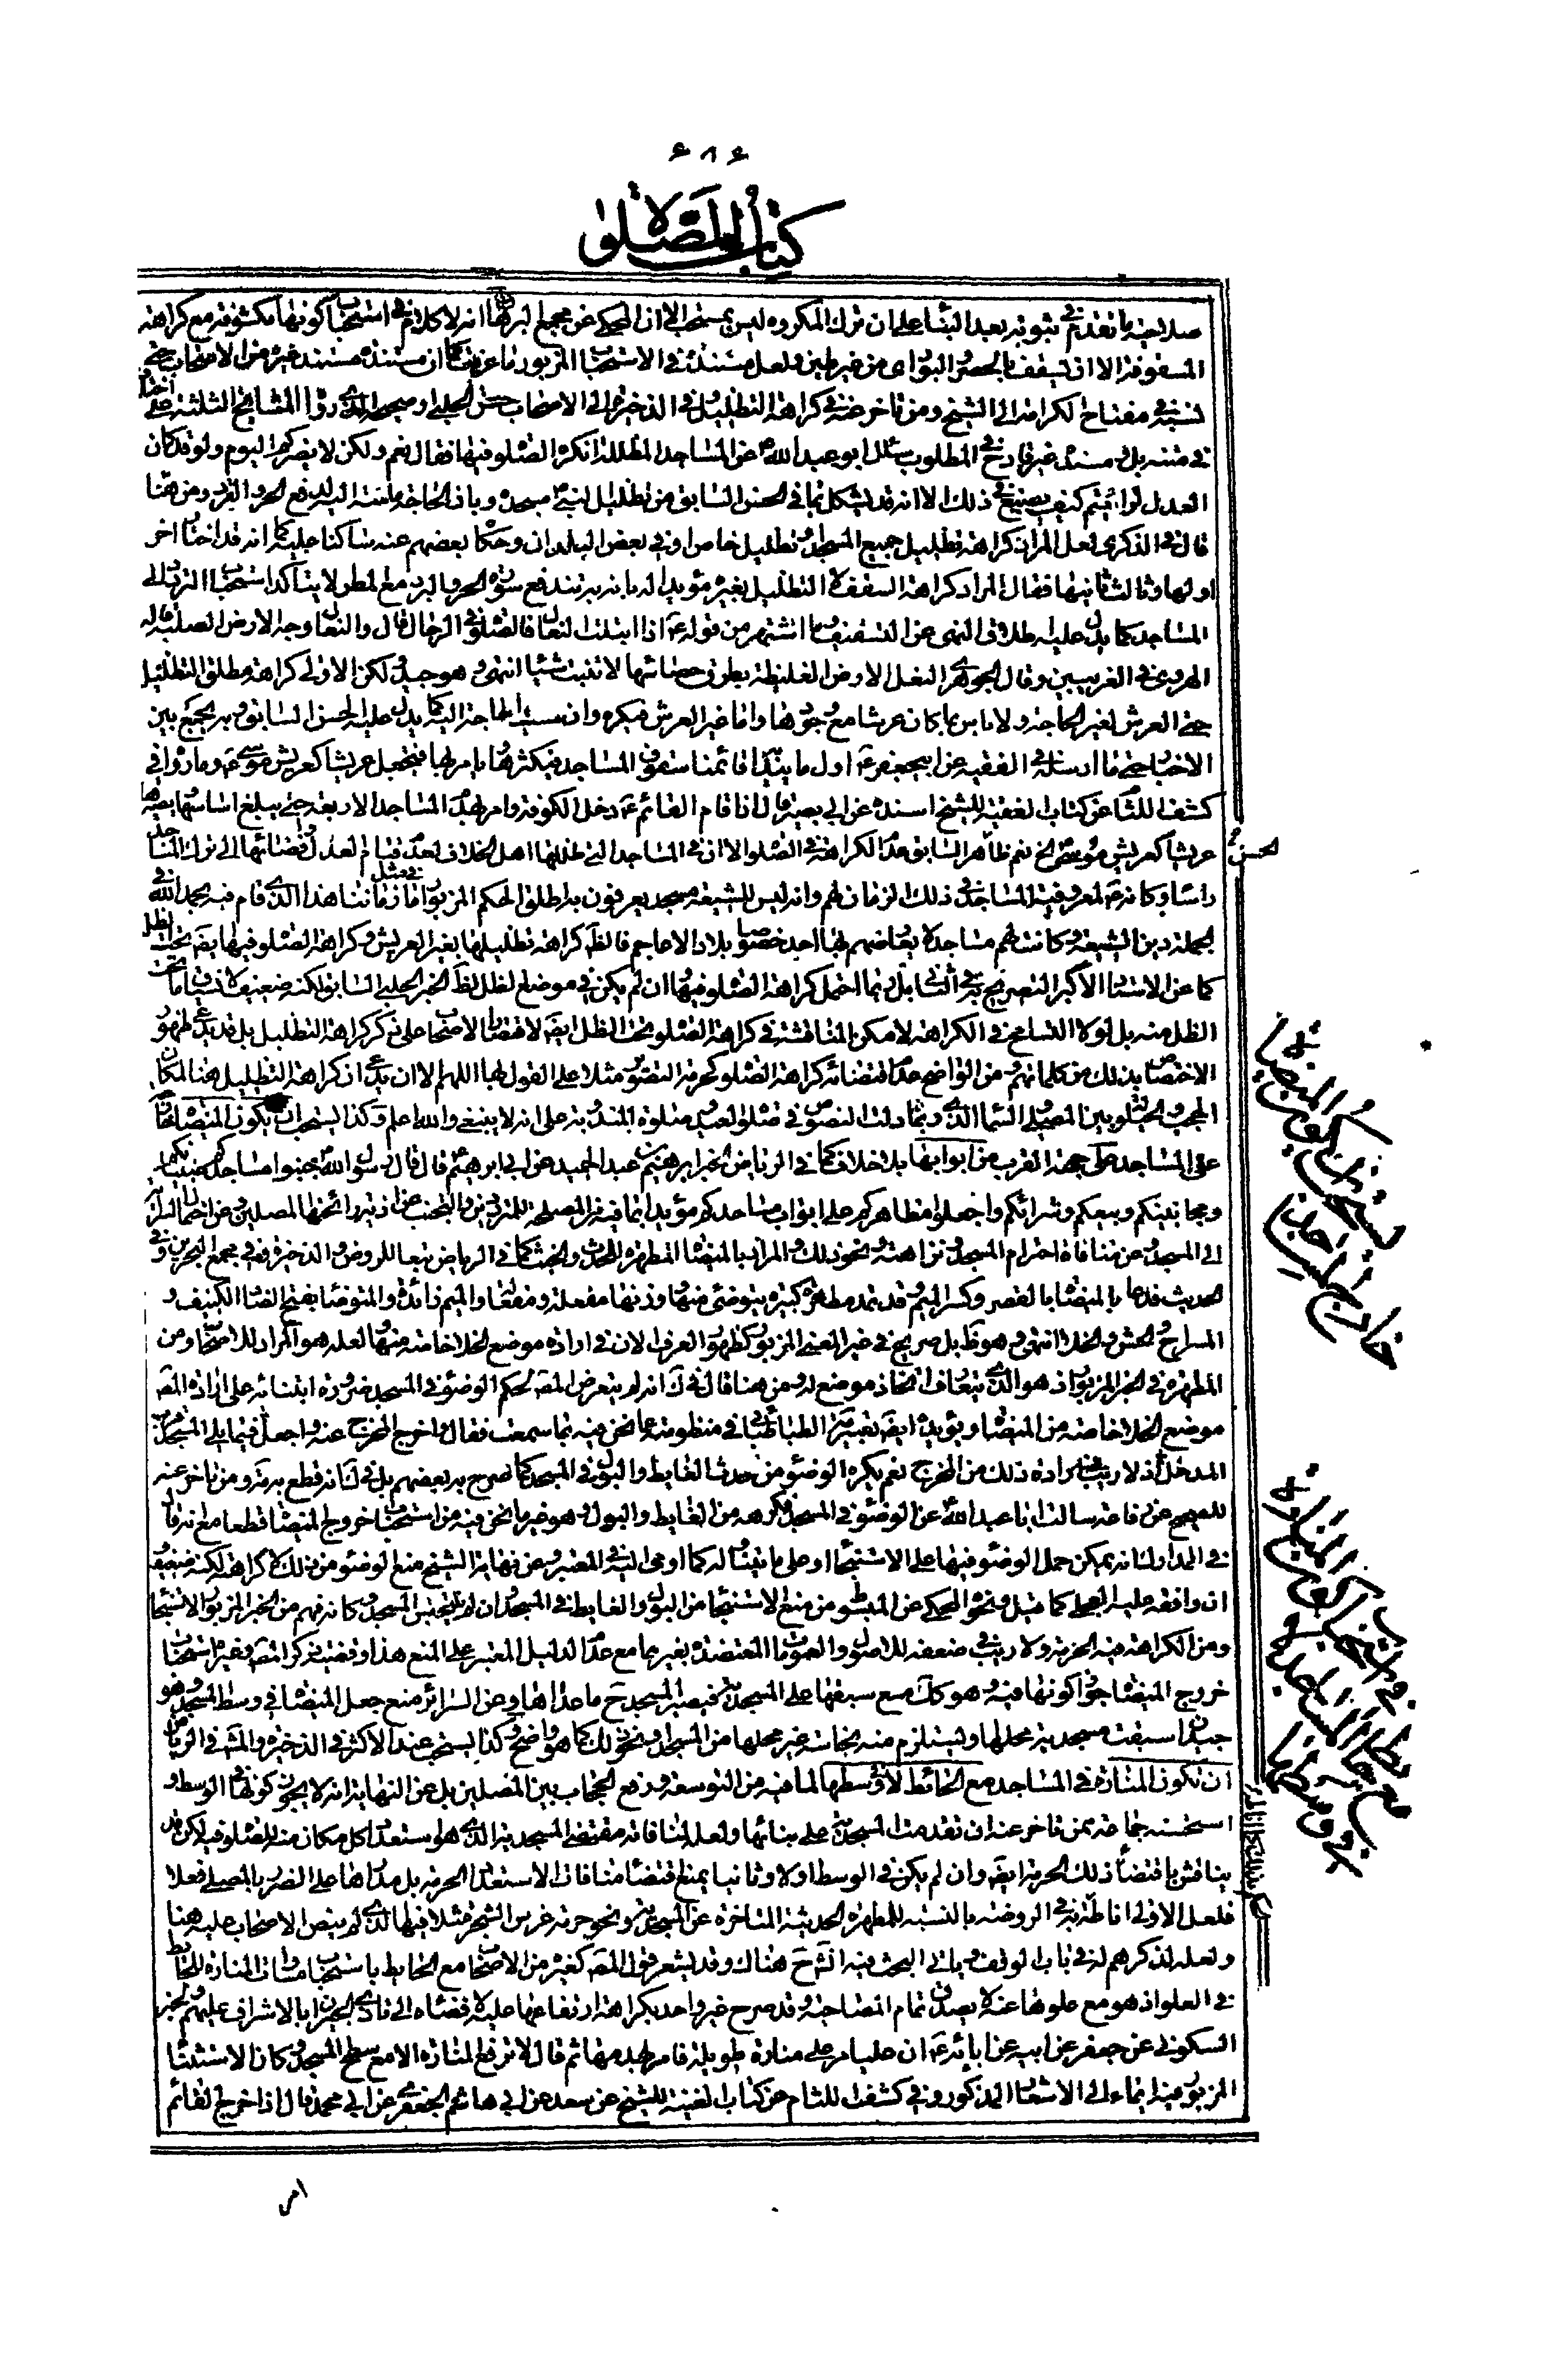 ۶۸۶
كتاب الصلاة
صلاحية ما تقدم في ثبوته بعد البناء على ان ترك المكروه ليس بمستحب الا ان المحكي عن مجمع البرهان انه لا كلام في استحباب كونها مكشوفة مع كراهة
المسقوفة الا ان تسقف بالحصر البواري من غير طين ولعل مستنده في الاستحباب المزبور ما عرفت كما ان مستند مستند غيره من الاصحاب حتى
نسبه في مفتاح الكرامة الى الشيخ ومن تاخر عنه في كراهة التظليل وفي الذخيرة الى الاصحاب حسن الحلبي او صحيحه الذي رواه المشايخ الثلثة على اختلاف
في متنه بل وسنده غير قادح في المطلوب سئل ابو عبد الله عن المساجد المظللة انكره الصلوة فيها فقال نعم ولكن لا يضركم اليوم ولو قد كان
العدل لرايتم كيف يصنع في ذلك الا انه قد يشكل بما في الحسن السابق من تظليل النبي مسجده وبان الحاجة ماسة اليه لدفع الحر والقر ومن هنا
قال في الذكرى لعل المراد كراهة تظليل جميع المسجد او تظليل خاص او في بعض البلدان وحكاه بعضهم عنه ساكتا عليه كما انه قد اختار اخر
اولها وثالث ثانيها فقال المراد كراهة السقف لا التظليل بغيره مؤيدا له بانه به تندفع سورة الحر والبرد مع المطر لا يتاكد استحباب التردد الى
المساجد كما يدل عليه اطلاق النهي عن التسقيف وما اشتهر من قوله ع اذا ابتلت النعال فالصلوة في الرحال قال والنعال وجه الارض الصلبة قاله
الهروي في الغريبين وقال الجوهري النعل الارض الغليظة يبرق حصاها لا تنبت شيئا انتهى وهو جيد لكن الاولى كراهة مطلق التظليل
حتى العرش لغير الحاجة ولا باس بما كان عريشا مع وجودها واما غير العرش فيكره وان مست الحاجة اليه كما يدل عليه الحسن السابق وبه يجمع بين
الاخبار حتى ما ارسله في الفقيه عن ابي جعفر ع اول ما يبدأ به قائمنا سقوف المساجد فيكسرها ويامر بها فتجعل عريشا كعريش موسى ع وما رواه في
كشف اللثام عن كتاب الغيبة للشيخ اسنده عن ابي بصير قال اذا قام القائم ع دخل الكوفة وامر بهدم المساجد الاربعة حتى يبلغ اساسها ويصيرها
عريشا كعريش موسى الخ نعم ظاهر السابق عدم الكراهة في الصلوة الا ان في المساجد التي ظللها اهل الخلاف لعدم قيام العدل وافضائها الى ترك المساجد
راسا وكانه المعروفية المساجد في ذلك الزمان لهم وانه ليس للشيعة مسجد يعرفون به اطلق الحكم المزبور اما في مثل زماننا هذا الذي قام فيه بحمد الله في
الجملة دين الشيعة وكانت لهم مساجد لا يعارضهم بها احد خصوصا بلاد الاعاجم فالظ كراهة تظليلها بغير العريش وكراهة الصلوة فيها ايضا تحت الظل
كما عن الاستاد الاكبر التصريح به في الثاني بل ربما احتمل كراهة الصلوة فيها وان لم يكن في موضع الظل لظ الخبر الحلبي السابق لكنه ضعيف لانسياق ما تحت
الظل منه بل لولا التسامح في الكراهة لامكن المناقشة في كراهة الصلوة تحت الظل ايضا لاقتصار الاصحاب على ذكر كراهة التظليل بل قد يدعى ظهور
الاختصاص بذلك من كلماتهم ومن الواضح عدم اقتضائه كراهة الصلوة كحرمة التصوير مثلا على القول بها اللهم الا ان يدعى ان كراهة التظليل هنا لمكان
الحجب والحيلولة بين المصلي والسماء الذي ربما دلت النصوص في صلوة العيد وصلوة المندوبة على انه لا ينبغي والله اعلم وكذا يستحب ان يكون الميضاة
على المساجد على جهة القرب من ابوابها بلا خلاف كما في الرياض لخبر ابرهيم بن عبد الحميد عن ابي ابرهيم قال قال رسول الله جنبوا مساجدكم صبيانكم
ومجانينكم وبيعكم وشرائكم واجعلوا مطاهركم على ابواب مساجدكم مؤيدا بما فيه من المصلحة للمترددين والتجنب عن تاذي رائحتها المصلين وعن احتمال السراية
الى المسجد وعن منافاة احترام المسجد ونزاهته ونحو ذلك والمراد بالميضاة المطهرة للحدث والخبث كما في الرياض تبعا للروض والذخيرة وفي مجمع البحرين وفي
الحديث فدعا بالميضاة بالقصر وكسر الميم وقد تمد مطهرة كبيرة يتوضئ منها وزنها مفعلة ومفعالة والميم زائدة والمتوضأ بفتح الضاد الكنيف و
المستراح والحش والخلاء انتهى وهو ظ بل صريح في غير المعنى المزبور كظهور العرف الان في ارادة موضع الخلاء خاصة منها ولعله هو المراد للاصحاب ومن
المطهرة في الخبر المزبور اذ هو الذي يتعارف اتخاذ موضع له ومن هنا قال في ك انه لم يتعرض المصـ لحكم الوضوء في المسجد ضرورة ابتنائه على ارادة المصـ
موضع الخلاء خاصة من الميضاة ويؤيده ايضا تعبير الطباطبائي في منظومته عما نحن فيه بما سمعت فقال واخرج المخرج عنه واجعل فيما يلي المسجد قرب
المدخل اذ لا ريب في ارادة ذلك من المخرج نعم يكره الوضوء من حدث الغايط والبول في المسجد كما صرح به بعضهم بل في ك انه قطع به المصـ ومن تاخر عنه
للصحيح عن رفاعة سالت ابا عبد الله عن الوضوء في المسجد فكرهه من الغايط والبول وهو غير ما نحن فيه من استحباب خروج الميضاة قطعا مع انه قال
في المدارك انه يمكن حمل الوضوء فيها على الاستنجاء او على ما يتناوله كما اومى اليه في المعتبر وعن نهاية الشيخ منع الوضوء من ذلك لا كراهة لكنه ضعيف
ان وافقه عليه الحلي كما قيل ونحوه المحكي عن المبسوط من منع الاستنجاء من البول والغايط في المسجد ان لم يتنجس المسجد وكانه فهم من الخبر المزبور الاستنجاء
ومن الكراهة فيه الحرمة ولا ريب في ضعفه للاصول والعمومات المعتضدة بغيرهما مع عدم الدليل المعتبر على المنع هذا وقضية ذكر المصـ وغيره استحباب
خروج الميضاة جواز كونها فيه وهو كك مع سبقها على المسجدية فيصير المسجد ح ما عداها وعن السرائر منع جعل الميضاة في وسط المسجد وهو
جيد ان سبقت مسجدية محلها او استلزم منه نجاسة غير محلها من المسجد ونحو ذلك كما هو واضح وكذا يستحب عند الاكثر في الذخيرة والمشهور في الرياض
ان تكون المنارة في المساجد مع الحائط لا في وسطها لما فيه من التوسعة ورفع الحجاب بين المصلين بل عن النهاية انه لا يجوز كونها في الوسط و
استحسنه جماعة ممن تاخر عنه ان تقدمت المسجدية على بنائها ولعله لمنافاته مقتضى المسجدية الذي هو استعداد كل مكان منه للصلوة فيه لكن قد
يناقش باقتضاء ذلك الحرمة ايضا وان لم يكن في الوسط اولا وثانيا يمنع اقتضاء منافات الاستعداد الحرمة بل مدارها على الضرر بالمصلي فعلا
فلعل الاولى اناطته به في الروضة بالنسبة للمطهرة الحديثة المتاخرة عن المسجدية ونحو حرمة غرس الشجر مثلا فيها الذي لم ينص الاصحاب عليه هنا
ولعله لذكرهم له في باب الوقف وياتي البحث فيه انشـ ح هناك وقد يشعر قول المصـ كغيره من الاصحاب مع الحايط باستحباب مساوات المنارة للحايط
في العلو اذ هو مع علوها عنه لا يصدق تمام المصاحبة وقد صرح غير واحد بكراهة ارتفاعها عليه لافضائه الى تاذي الجيران بالاشراف عليهم ولخبر
السكوني عن جعفر عن ابيه عن ابائه ع ان عليا مر على منارة طويلة فامر بهدمها ثم قال لا ترفع المنارة الا مع سطح المسجد وكان الاستثناء
المزبور فيه ايماء الى الاشعار المذكور وفي كشف اللثام عن كتاب الغيبة للشيخ عن سعد عن ابي هاشم الجعفري عن ابي محمد قال اذا خرج القائم
امر